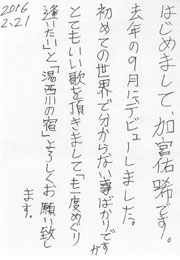 2016
2.21
はじめまして、加宮佑唏です。
去年の9月にデビューしました。
初めての世界で分からない事ばかりですが
とてもいい歌を頂きまして「も一度めぐり
逢いたい」と「湯西川の宿」よろしくお願い致し
ます。